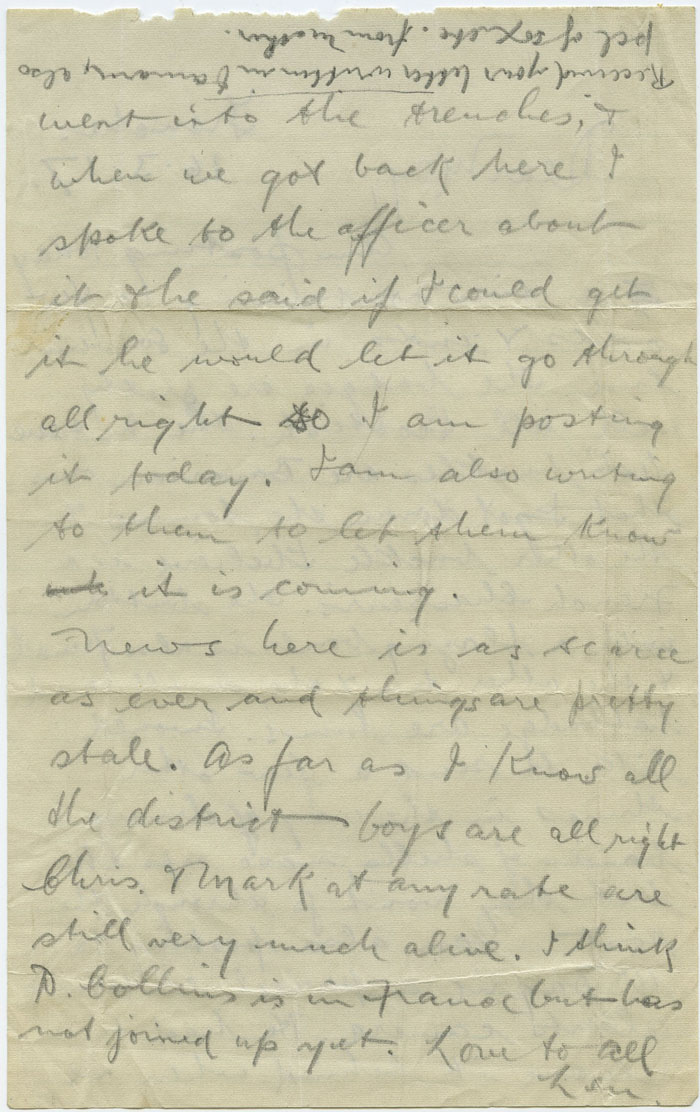 went into the trenches, &
when we got back here I
spoke to the officer about
it & he said if I could get
it he would let it go through
all right so I am posting
it today. I am also writing
to them to let them know
it is coming.
News here is as scarce
as ever and things are pretty
stale. As far as I know all
the district boys are all right
Chris. & Mark at any rate are
still very much alive. I think
D. Collins is in France but has
not joined up yet. Love to all
Len.
Received your letter written in January, also
pcl of sox etc. from Mother.